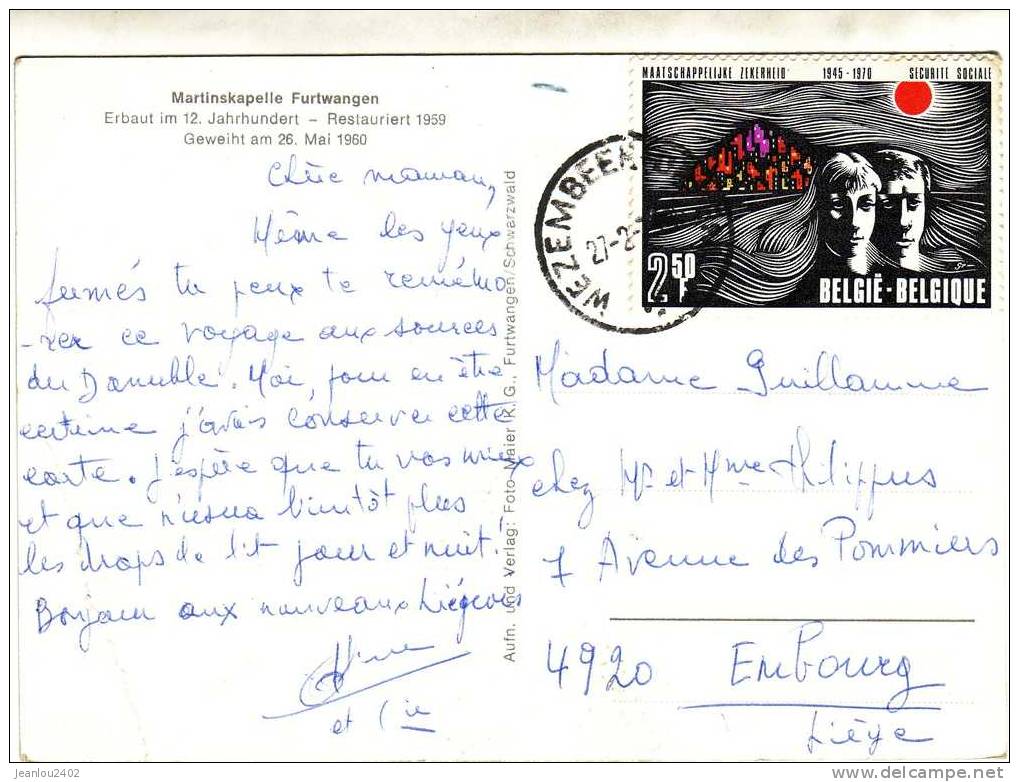 Martinskapelle Furtwangen
Erbaut im 12. Jahrhundert – Restauriert 1959
Geweiht am 26. Mai 1960
Chère maman,
Même les yeux
fermés tu peux te remémo
-rer ce voyage aux sources
du Danuble. Moi, pour en être
certaine j'avais conserver cette
carte. J'espère que tu vas mieux
et que n'usera bientôt plus
les draps de lit jour et nuit!
Bonjour aux nouveaux Liégeois
et Cie
Aufn. und Verlag: Foto-Maier K.G., Furtwangen/Schwarzwald
MAATSCHAPPELIJKE ZEKERHEID 1945-1970 SÉCURITÉ SOCIALE
2 50 F
BELGIË-BELGIQUE
WEZEMBEEK
27-2
Madame Guillaume
chez Mr et Mme Philippus
7 Avenue des Pommiers
4920 Embourg
Liège
jeanlou2402
delcampe.net